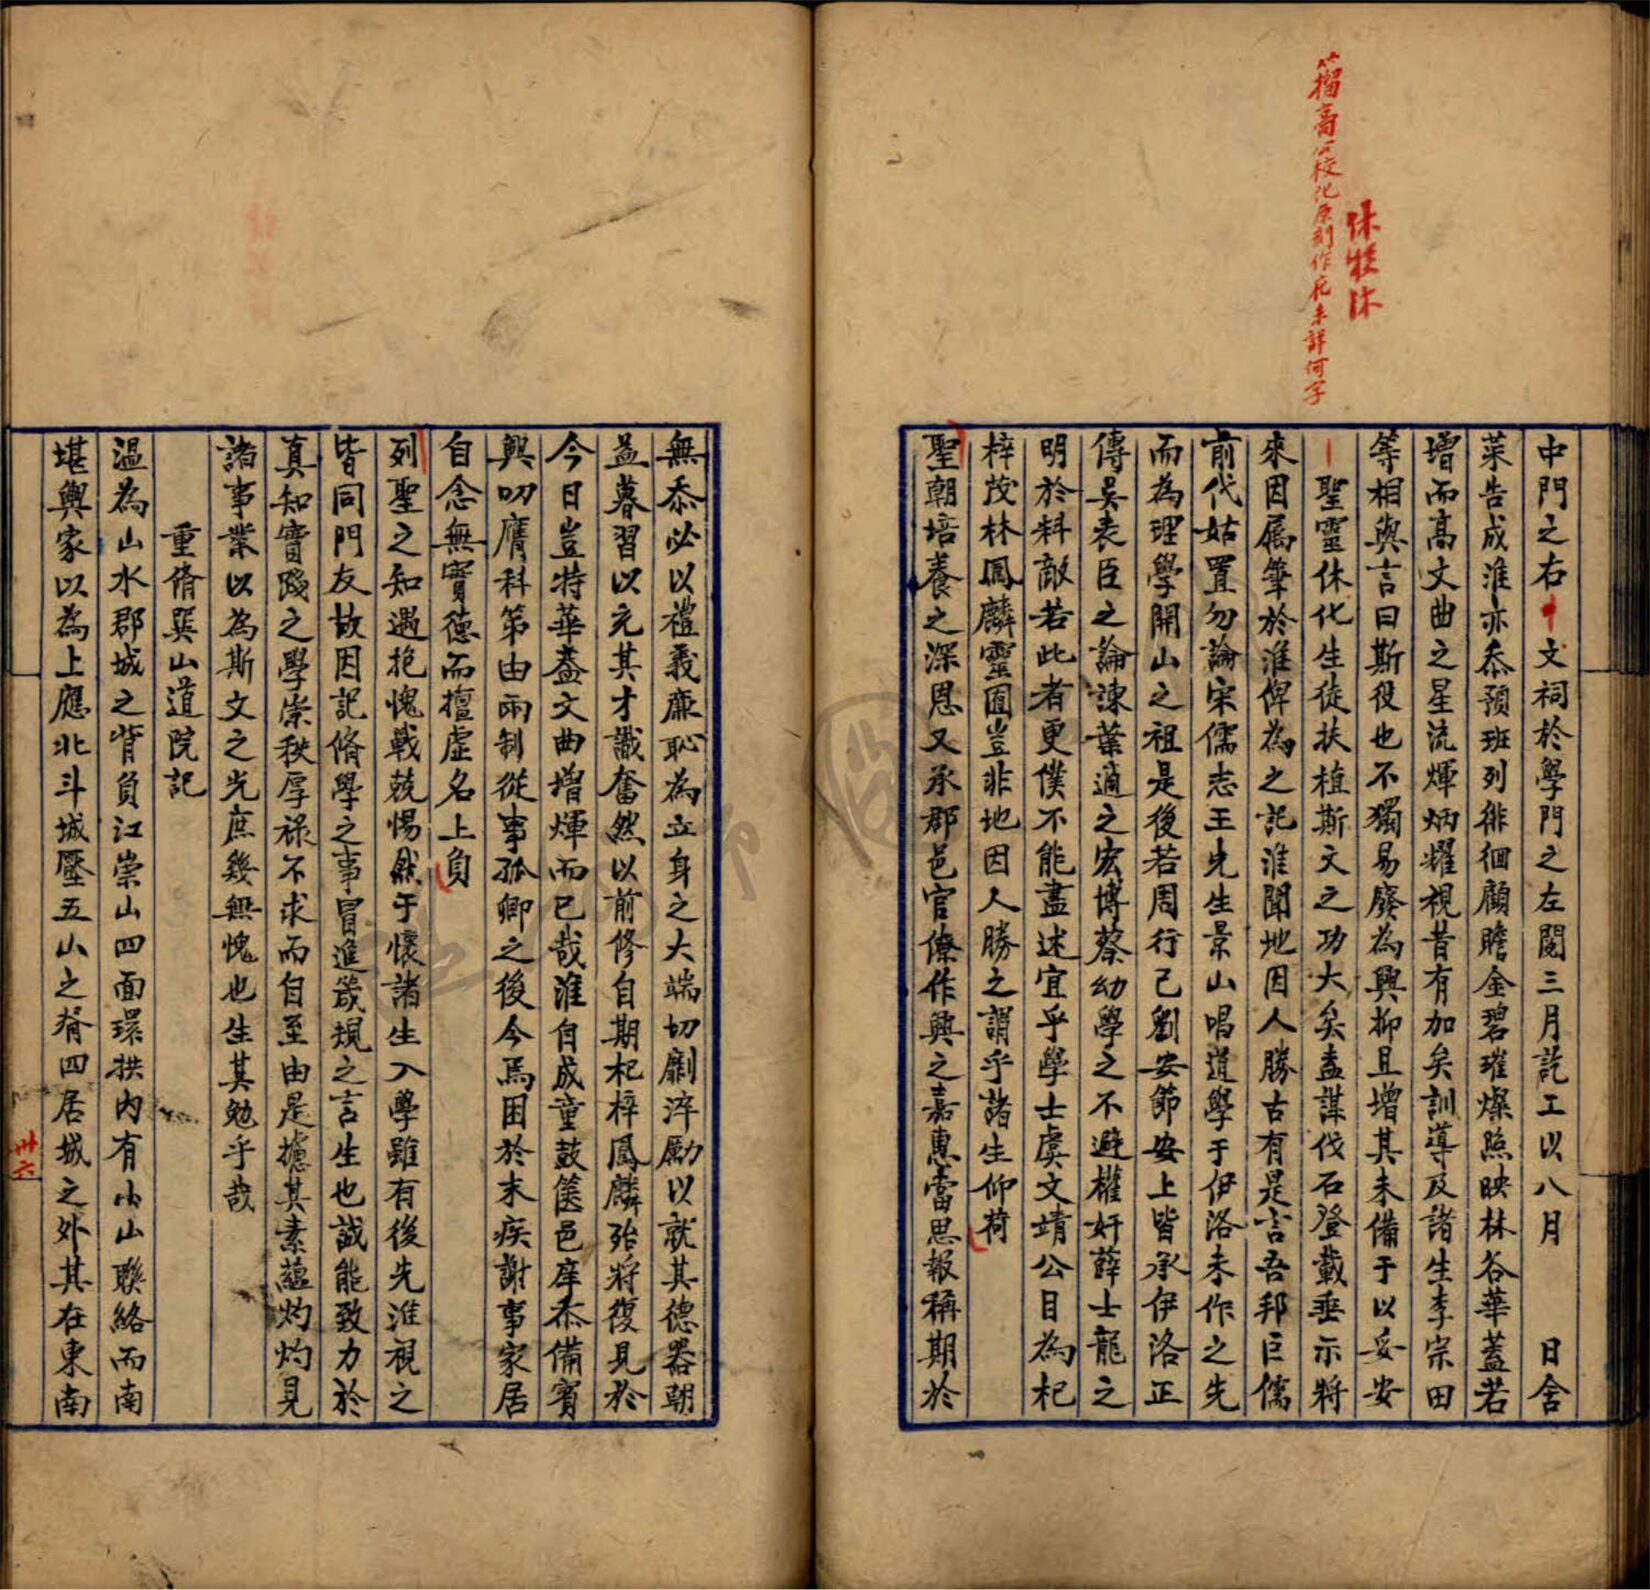 休牲沐
高公校化原刻作花未詳何字
中門之右文祠於學門之左閱三月訖工以八月 日舍
菜告成淮亦忝預班列徘徊顧瞻金碧璀燦照映林谷華蓋若
增而高文曲之星流煇炳燿視昔有加矣訓導及諸生李宗田
等相與言曰斯役也不獨易廢為興抑且增其未備于以妥安
聖靈休化生徒扶植斯文之功大矣盍謀伐石登載垂示將
來因屬筆於淮俾為之記淮聞地因人勝古有是言吾邦巨儒
前代姑置勿論宋儒志王先生景山唱道學于伊洛未作之先
而為理學開山之祖是後若周行己劉安節安上皆承伊洛正
傳吳表臣之論諫葉適之宏博蔡幼學之不避權奸薛士龍之
明於料敵若此者更僕不能盡述宜乎學士虞文靖公目為杞
梓茂林鳳麟靈囿豈非地因人勝之謂乎諸生仰荷
聖朝培養之深恩又承郡邑官僚作興之嘉惠當思報稱期於
無忝必以禮義廉恥為立身之大端切劘淬勵以就其德器朝
益暮習以充其才識奮然以前修自期杞梓鳳麟殆將復見於
今日豈特華葢文曲增煇而已哉淮自成童鼓篋邑庠忝備賓
興叨膺科第由兩制從事孤卿之後今焉困於末疾謝事家居
自念無實德而擅虛名上負
列聖之知遇抱愧戰兢惕然于懷諸生入學雖有後先淮視之
皆同門友故因記脩學之事冒進箴規之言生也誠能致力於
真知實踐之學崇秩厚祿不求而自至由是攄其素蘊灼灼見
諸事業以為斯文之光庶幾無愧也生其勉乎哉
重脩巽山道院記
溫為山水郡城之背負江崇山四面環拱內有小山聯絡而南
堪輿家以為上應北斗城壓五山之脊四居城之外其在東南
卅六